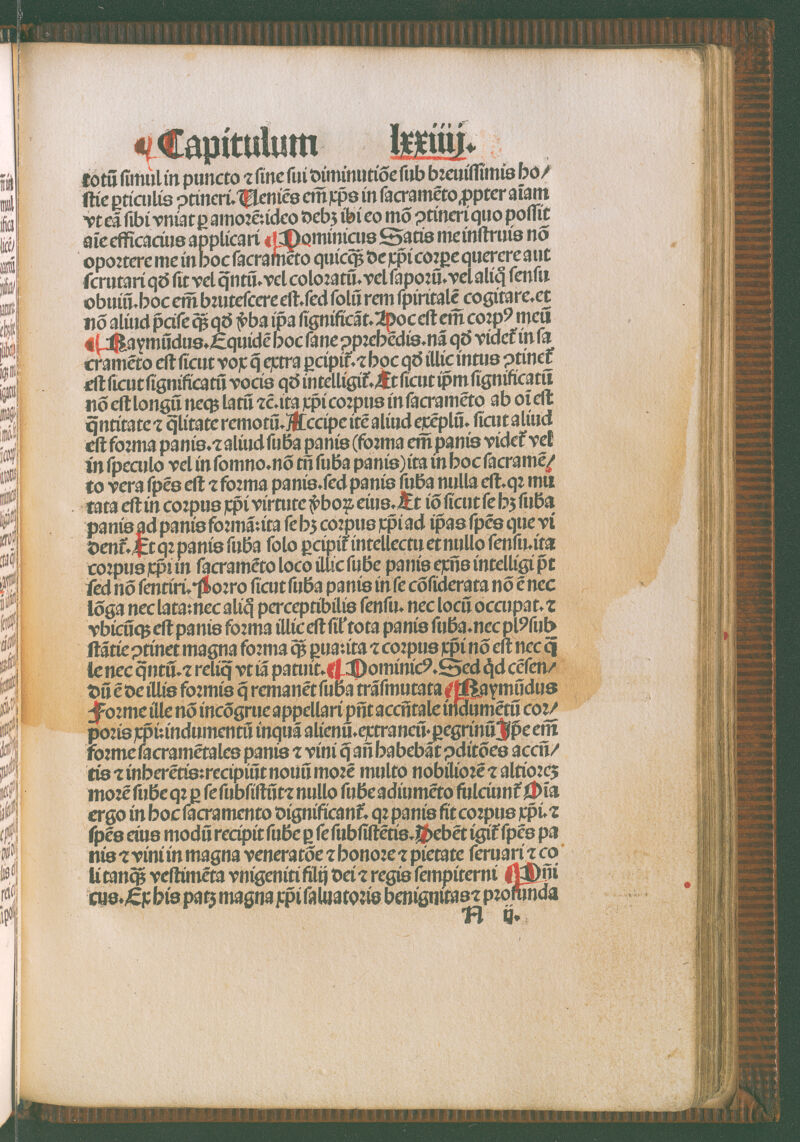 Capitulum lxxiiij.
totū simul in puncto ⁊ sine sui diminutiōe sub breuissimis ho/
stie ꝑticulis ↄtineri. Ueniēs em̄ xp̄s in sacramēto ꝓpter aīam
vt eā sibi vniat ꝑ amorē: ideo debꝫ ibi eo mō ↄtineri quo possit
aīe efficacius applicari Dominicus Satis me instruis nō
oportere me in hoc sacramēto quicq̄ꝫ de xp̄i corꝑe querere aut
scrutari qđ sit vel q̄ntū. vel coloratū. vel saporū. vel aliq̄ sensu
obuiū. hoc em̄ brutescere est. sed solū rem spiritalē cogitare. et
nō aliud p̄cise q̄ꝫ qđ v̄ba ip̄a significāt. Hoc est em̄ corpꝰ meū
Raymūdus. Equidē hoc sane ↄprehēdis. nā qđ videt̄ in sa
cramēto est sicut vox q̄ extra ꝑcipit̄. ⁊ hoc qđ illic intus ↄtinet̄
est sicut significatū vocis qđ intelligit̄. Et sicut ip̄m significatū
nō est longū neqꝫ latū ⁊c̄. ita xp̄i corpus in sacramēto ab oī est
q̄ntitate ⁊ q̄litate remotū. Accipe itē aliud exēplū. sicut aliud
est forma panis. ⁊ aliud sub̄a panis (forma em̄ panis videt̄ vel
in speculo vel in somno. nō tn̄ sub̄a panis) ita in hoc sacramē/
to vera sp̄es est ⁊ forma panis. sed panis sub̄a nulla est. qꝛ mu
tata est in corpus xp̄i virtute v̄boꝝ eius. Et iō sicut se hꝫ sub̄a
panis ad panis formā: ita se hꝫ corpus xp̄i ad ip̄as sp̄es que vi
dent̄. Et qꝛ panis sub̄a solo ꝑcipit̄ intellectu et nullo sensu. ita
corpus xp̄i in sacramēto loco illic sube panis exn̄s intelligi p̄t
sed nō sentiri. Porro sicut sub̄a panis in se cōsiderata nō ē nec
lōga nec lata: nec aliq̄ perceptibilis sensu. nec locū occupat. ⁊
vbicūqꝫ est panis forma illic est sil̄ tota panis sub̄a. nec plꝰ sub
stātie ↄtinet magna forma q̄ꝫ ꝑua: ita ⁊ corpus xp̄i nō est nec q̄
le nec q̄ntū. ⁊ reliq̄ vt iā patuit. Dominicꝰ. Sed qd cēsen/
dū ē de illis formis q̄ remanēt sub̄a trāsmutata Raymūdus
Forme ille nō incōgrue appellari pn̄t accn̄tale indumētū cor/
poris xp̄i: indumentū inquā alienū. extraneū. ꝑegrinū Ip̄e em̄
forme sacramētales panis ⁊ vini q̄ an̄ habebāt ↄditōes accn̄/
tis ⁊ inherētis: recipiūt nouū morē multo nobiliorē ⁊ altioreꝫ
morē sube qꝛ ꝑ se subsistūt ⁊ nullo sube adiumēto fulciunt̄ Oīa
ergo in hoc sacramento dignificant̄. qꝛ panis fit corpus xp̄i. ⁊
sp̄es eius modū recipit sube ꝑ se subsistētis. Debēt igit̄ sp̄es pa
nis ⁊ vini in magna veneratōe ⁊ honore ⁊ pietate seruari ⁊ co
li tanq̄ꝫ vestimēta vnigeniti filij dei ⁊ regis sempiterni Dn̄i
cus. Ex his patꝫ magna xp̄i saluatoris benignitas ⁊ profunda
N ij.